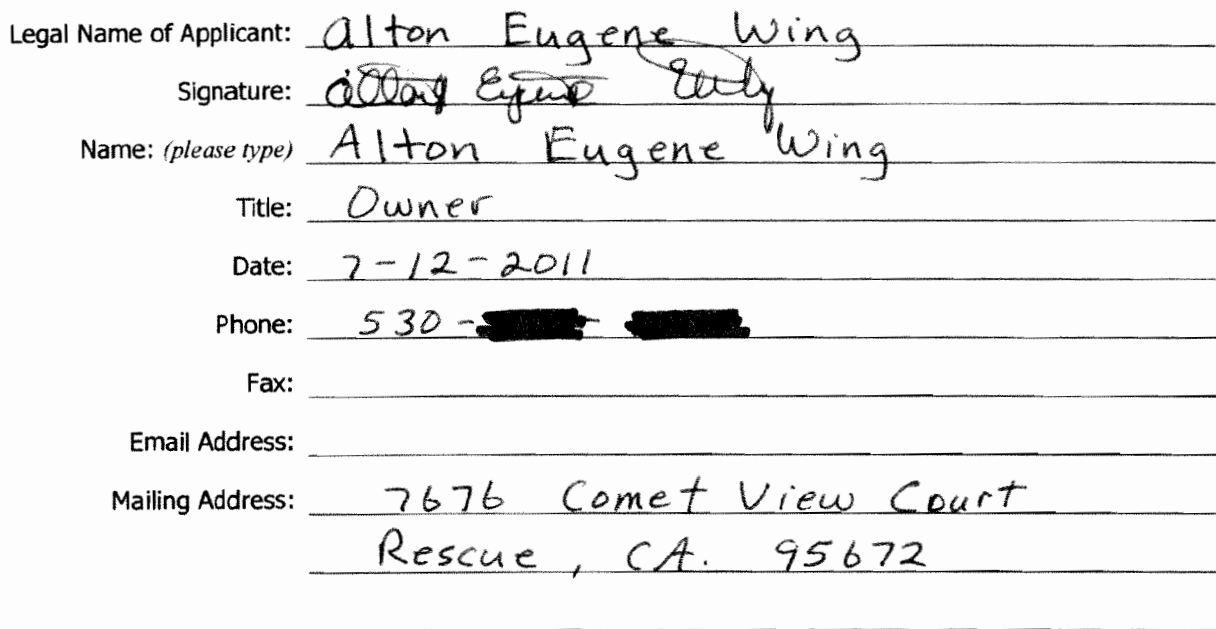 Legal Name of Applicant: Alton Eugene Wing
Signature:
Name: (please type) Alton Eugene Wing
Title: Owner
Date: 7-12-2011
Phone: 530 -
Fax:
Email Address:
Mailing Address: 7676 Comet View Court
Rescue, CA. 95672